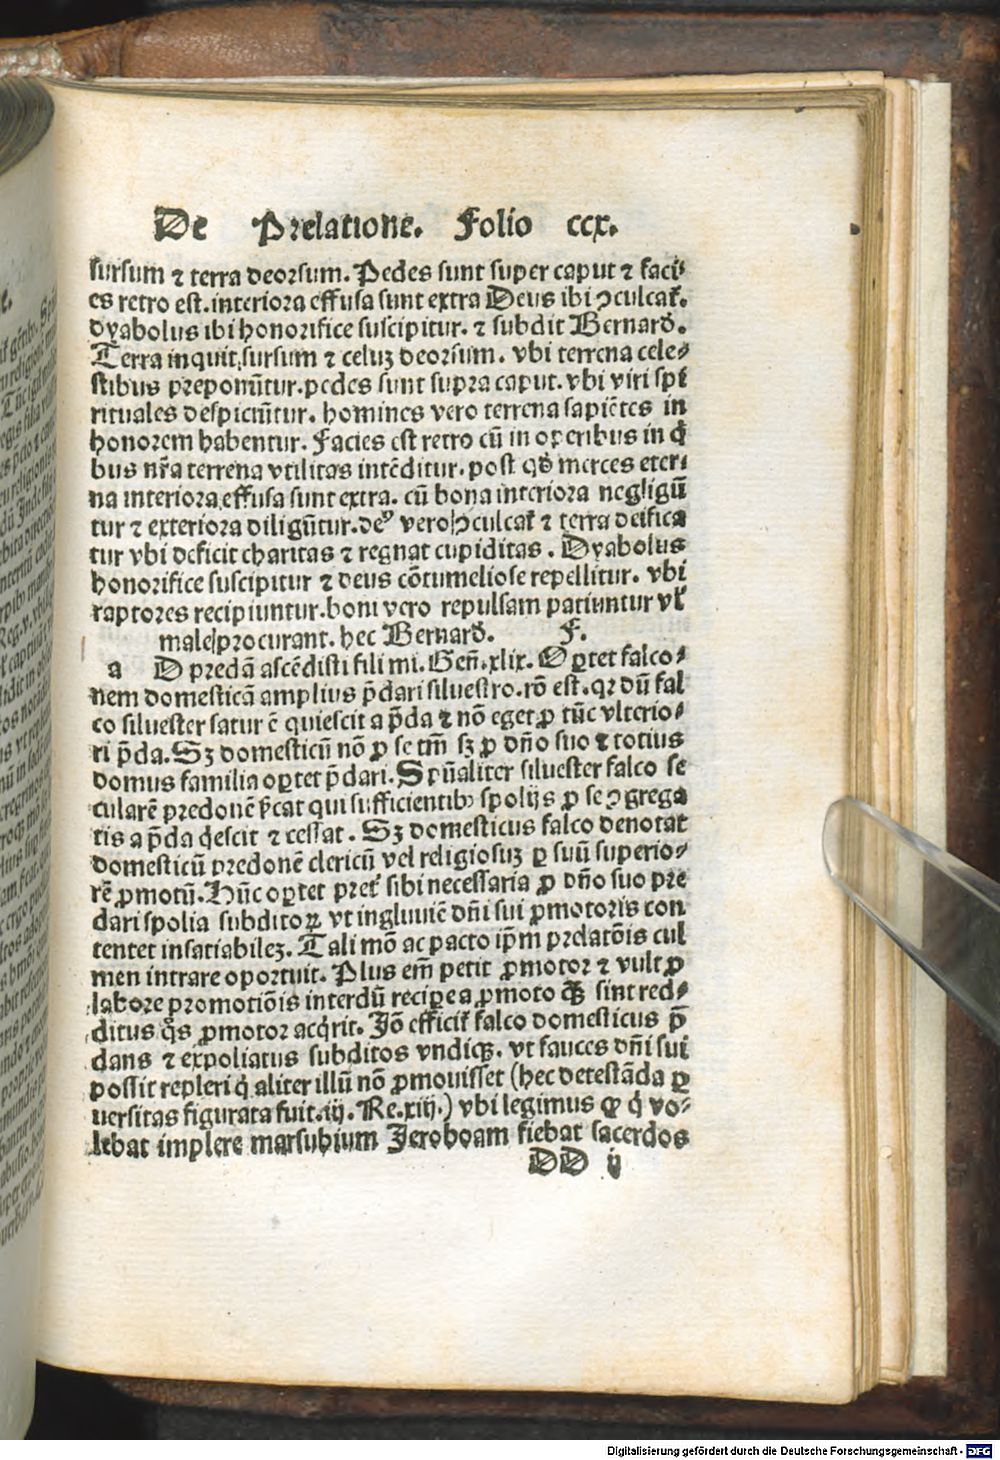 De Prelatione. Folio ccx.
sursum ⁊ terra deorsum. Pedes sunt super caput ⁊ faci⸗
es retro est. interiora effusa sunt extra Deus ibi ꝯculcat̃.
dyabolus ibi honorifice suscipitur. ⁊ subdit Bernard̃.
Terra inquit, sursum ⁊ celuꝫ deorsum. vbi terrena cele⸗
stibus preponũtur. pedes sunt supra caput. vbi viri spi
rituales despiciũtur. homines vero terrena sapiẽtes in
honorem habentur. Facies est retro cũ in operibus in q̇
bus nr̃a terrena vtilitas intẽditur. post qđ merces eter⸗
na interiora effusa sunt extra. cũ bona interiora negligũ
tur ⁊ exteriora diligũtur. deꝰ vero ꝯculcat̃ ⁊ terra deifica
tur vbi deficit charitas ⁊ regnat cupiditas. Dyabolus
honorifice suscipitur ⁊ deus cõtumeliose repellitur. vbi
raptores recipiuntur. boni vero repulsam patiuntur vl̃
male procurant. hec Bernard̃. F.
a D predã ascẽdisti fili mi. Geñ. xlix. Oꝑtet falco⸗
nem domesticã amplius p̃dari siluestro. rõ est. qꝛ dũ fal
co siluester satur ẽ quiescit a p̃da ⁊ nõ eget ꝓ tũc vlterio⸗
ri p̃da. Sꝫ domesticũ nõ ꝓ se tm̃ sꝫ ꝓ dño suo ⁊ totius
domus familia oꝑtet p̃dari. Spũaliter siluester falco se
cularẽ predonẽ p̃cat qui sufficientibꝫ spolijs ꝓ se ꝯgrega
tis a p̃da q̇escit ⁊ cessat. Sꝫ domesticus falco denotat
domesticũ predonẽ clericũ vel religiosuꝫ ꝑ suũ superio⸗
rẽ ꝓmotũ. Hũc oꝑtet pret̃ sibi necessaria ꝓ dño suo pre
dari spolia subditoꝝ vt ingluuiẽ dñi sui ꝓmotoris con
tentet insatiabileꝫ. Tali mõ ac pacto ip̃m prelatõis cul
men intrare oportuit. Plus em̃ petit ꝓmotor ⁊ vult ꝓ
labore promotiõis interdũ recipe a ꝓmoto ꝙ̃ sint red⸗
ditus q̃s ꝓmotor acq̇rit. Jõ efficit̃ falco domesticus p̃
dans ⁊ expoliatus subditos vndiqꝫ. vt fauces dñi sui
possit repleri q̇ aliter illũ nõ ꝓmouisset (hec detestãda ꝑ
uersitas figurata fuit. iij. Re. xiij.) vbi legimus ꝙ q̇ vo⸗
lebat implere marsubium Jeroboam fiebat sacerdos
DD ij
Digitalisierung gefördert durch die Deutsche Forschungsgemeinschaft - DFG